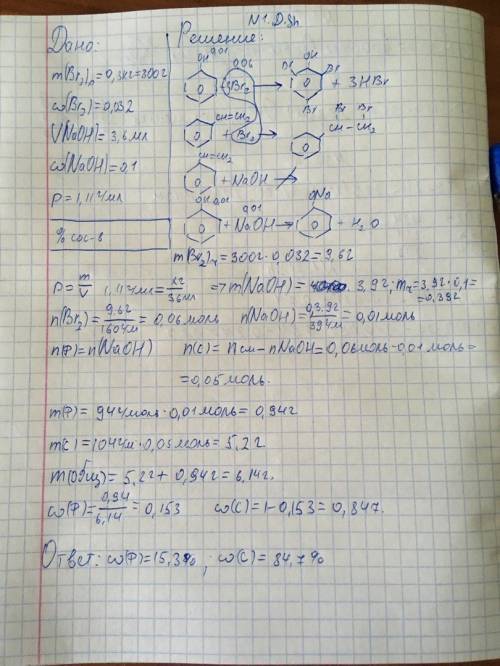 N1. D.Sh
Дано:
m(Br₂)р=0,3кг=300г
ω(Br₂)=0,032
V(NaOH)=3,6мл
ω(NaOH)=0,1
ρ=1,11г/мл
% сос-в
Решение:
OH 0,01 0,06 OH
Br Br
+ 3Br₂ → + 3HBr
Br
CH=CH₂ Br Br
+ Br₂ → CH-CH₂
CH=CH₂
+ NaOH →
OH 0,01 0,01 ONa
+ NaOH → + H₂O
m(Br₂)ч=300г·0,032=9,6г
ρ=m/V 1,11г/мл=xг/3,6мл => m(NaOH)= 3,9г, mч=3,9г·0,1=
=0,39г
n(Br₂)=9,6г/160г/м=0,06моль n(NaOH)=0,39г/39г/м=0,01моль
n(Ф)=n(NaOH) n(С)=nсм-nNaOH=0,06моль-0,01моль=
=0,05моль.
m(Ф)=94г/моль·0,01моль=0,94г
m(С)=104г/м·0,05моль=5,2г
m(общ)=5,2г+0,94г=6,14г.
ω(Ф)=0,94/6,14=0,153 ω(С)=1-0,153=0,847.
Ответ: ω(Ф)=15,3%, ω(С)=84,7%